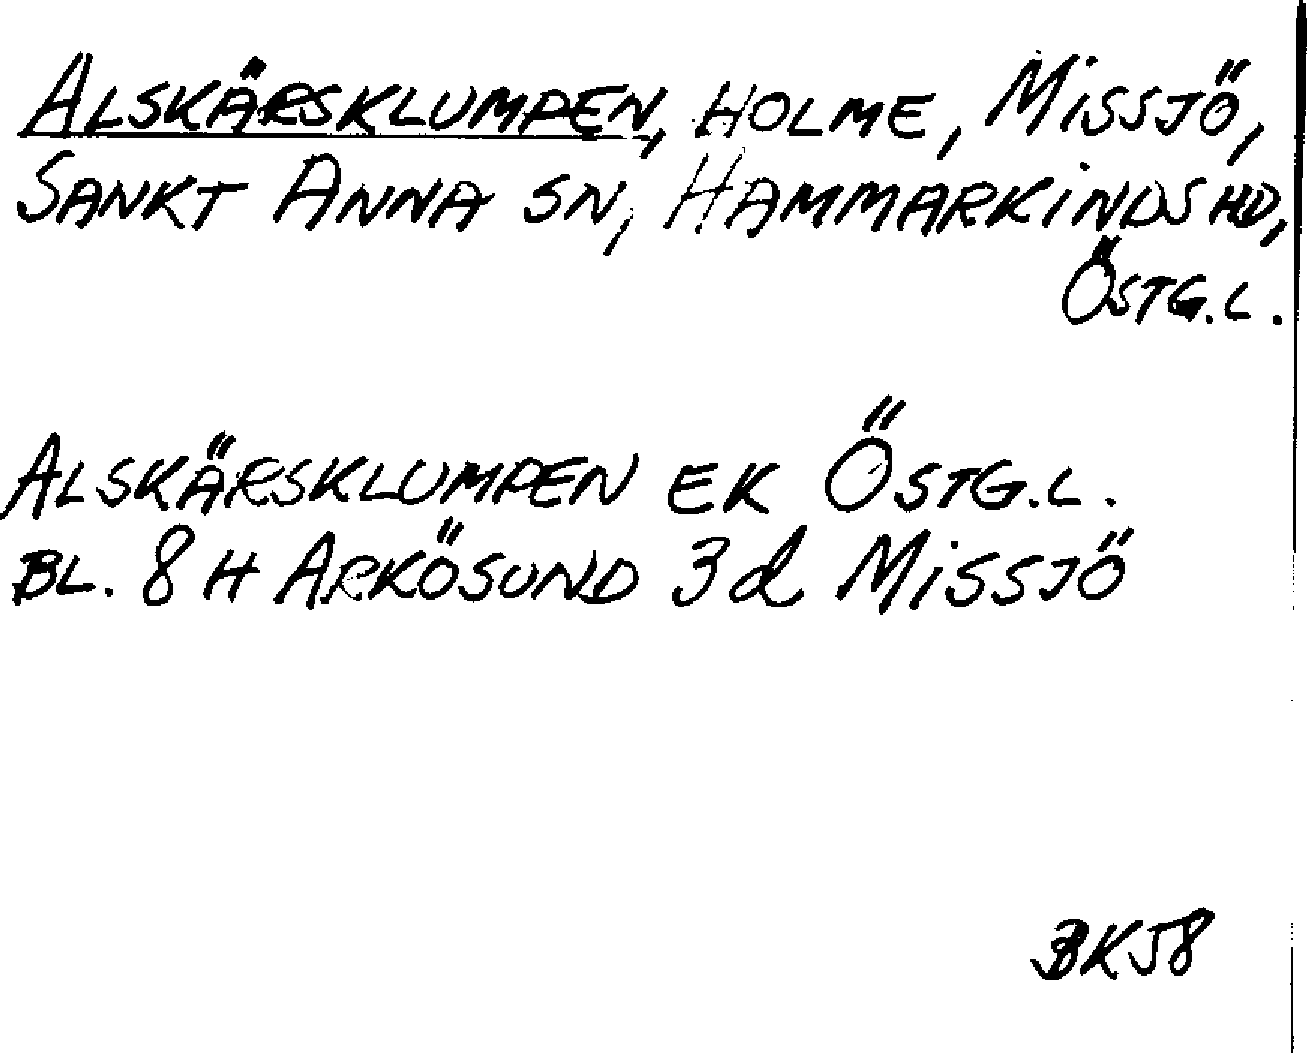 ALSKÄRSKLUMPEN, HOLME, MISSJÖ,
SANKT ANNA SN, HAMMARKINDS HD,
ÖSTG.L.
ALSKÄRSKLUMPEN EK ÖSTG.L.
BL. 8 H ARKÖSUND 3d MISSJÖ
BK58